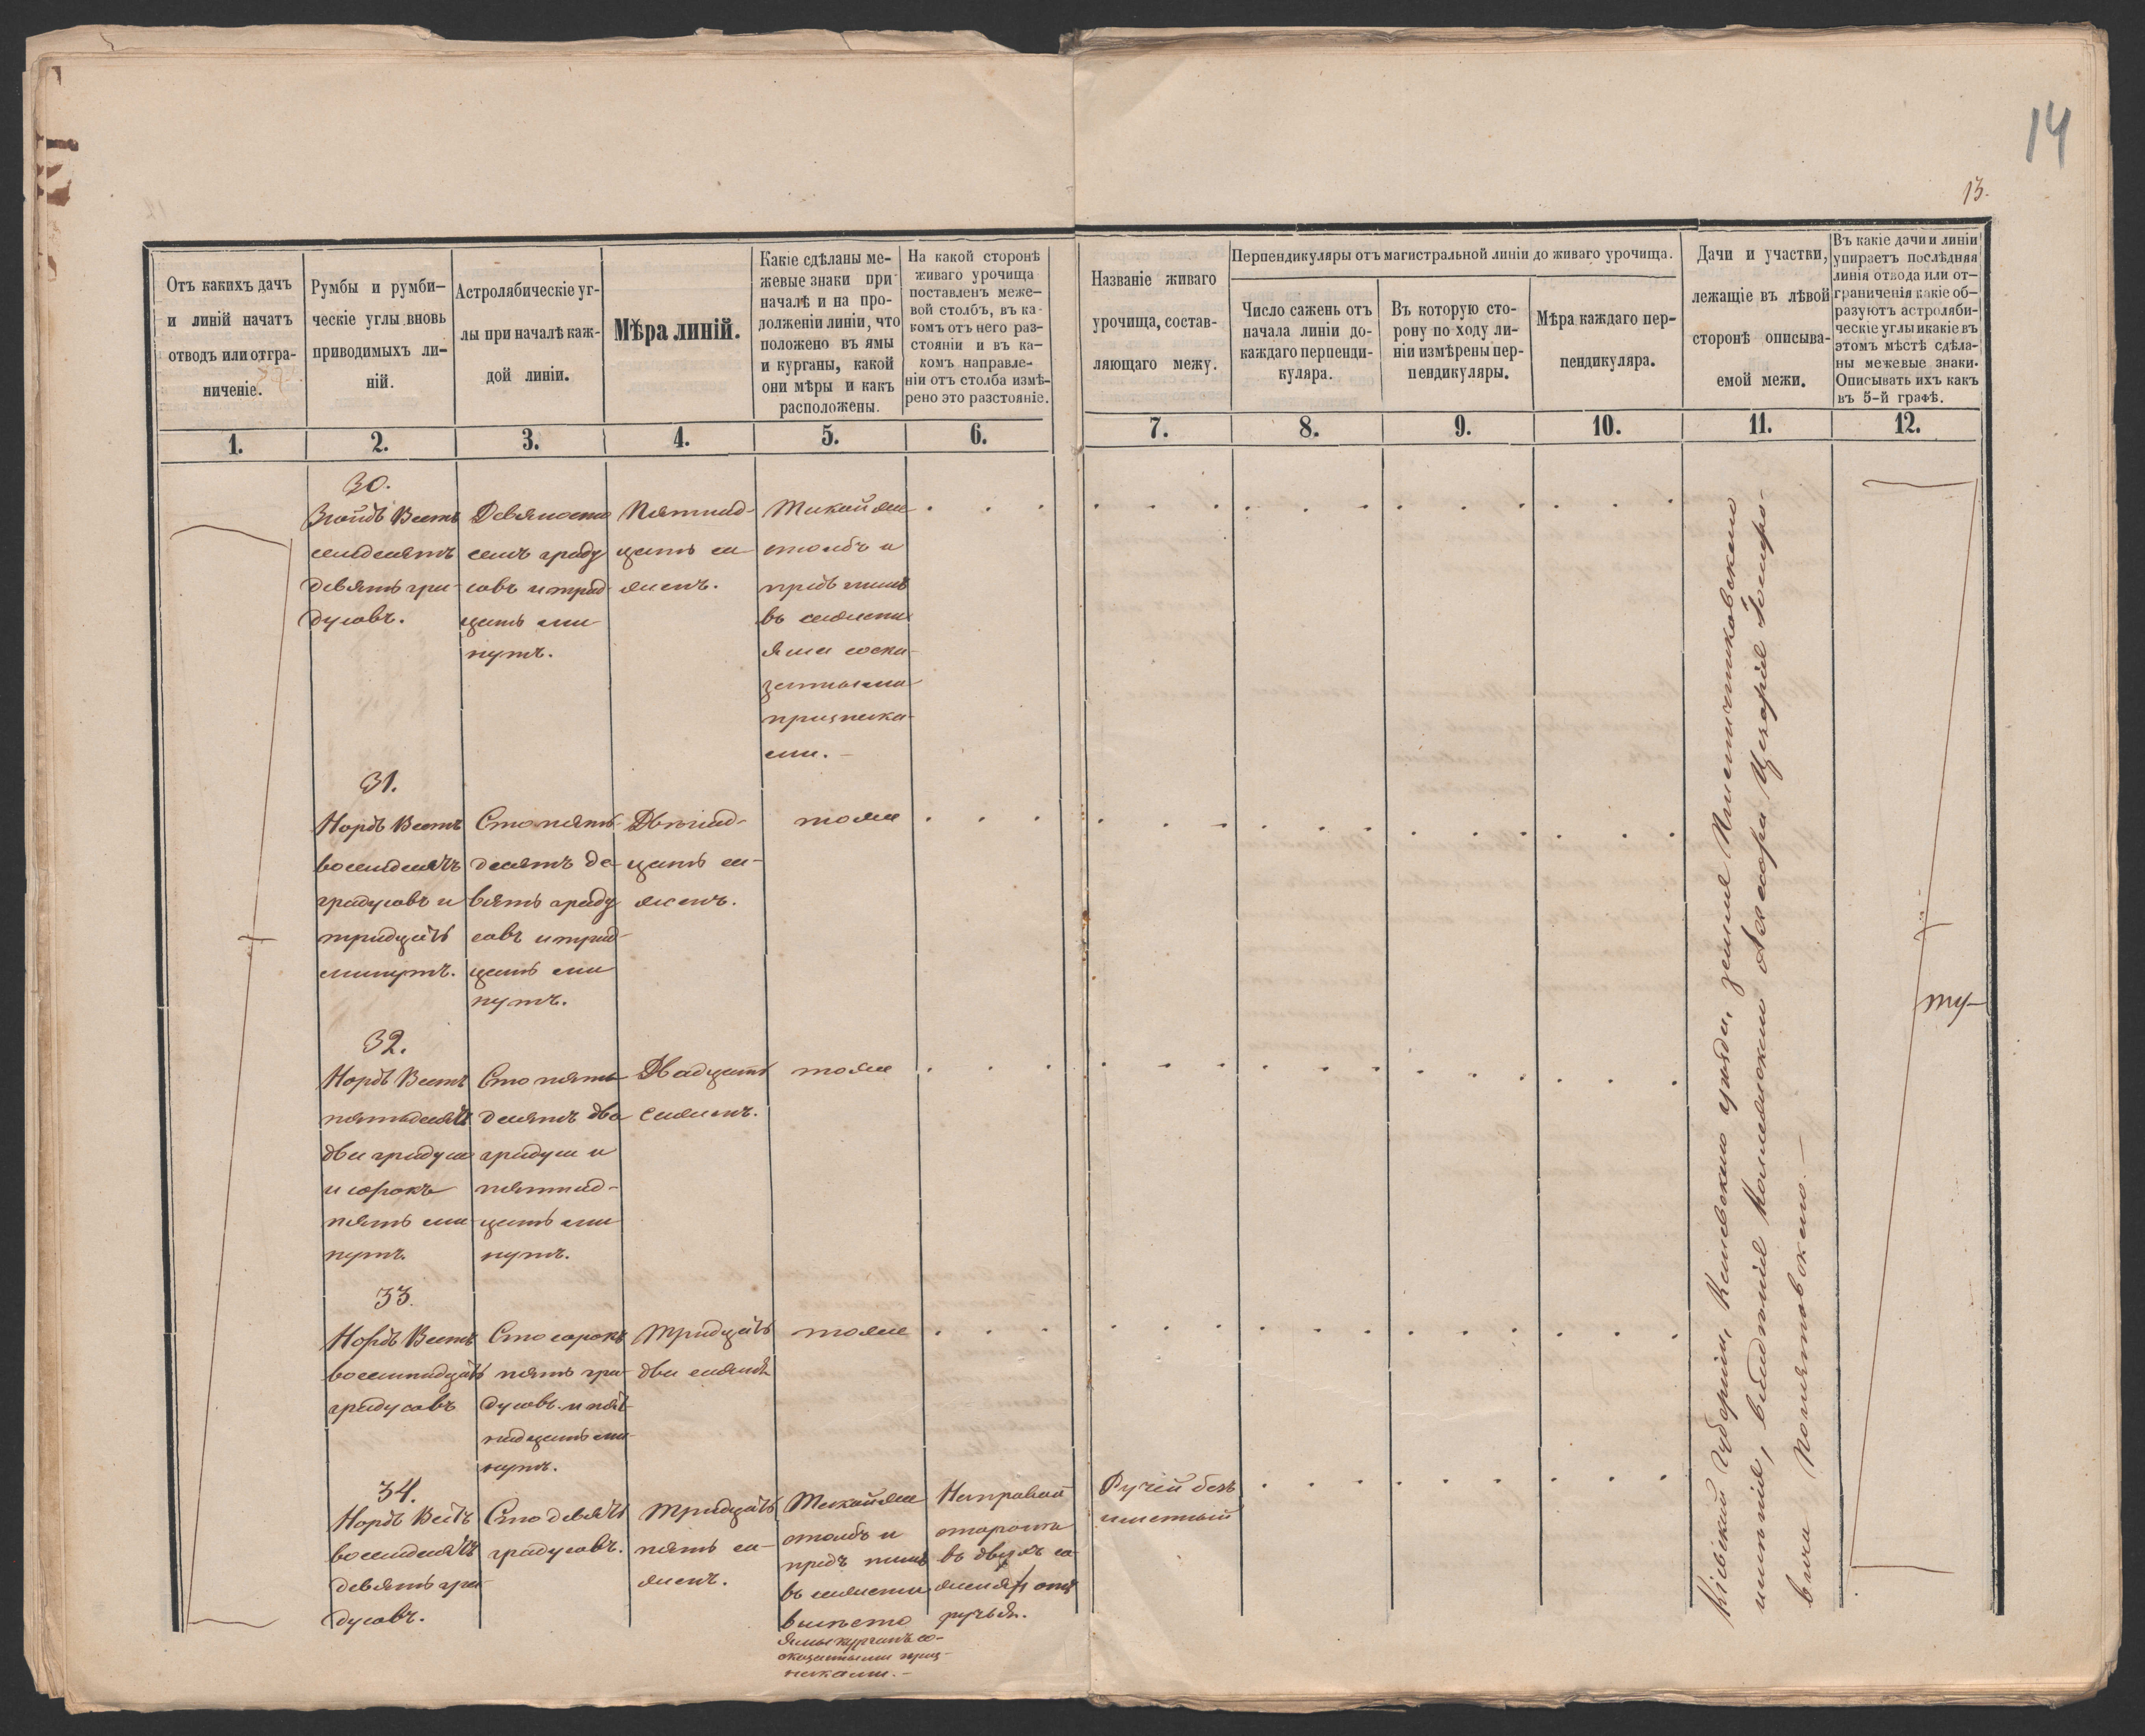 14
13.
Отъ какихъ дачъ
и линій начатъ
отводъ или отгра-
ниченіе.
Румбы и румби-
ческіе углы вновь
приводимыхъ ли-
ній.
Астролябическіе уг-
лы при началѣ каж-
дой линіи.
Мѣра линій.
Какіе сдѣланы ме-
жевые знаки при
началѣ и на про-
долженіи линіи, что
положено въ ямы
и курганы, какой
они мѣры и какъ
расположены.
На какой сторонѣ
живаго урочища
поставленъ меже-
вой столбъ, въ ка-
комъ отъ него раз-
стояніи и въ ка-
комъ направле-
ніи отъ столба измѣ-
рено это разстояніе.
Названіе живаго
урочища, состав-
ляющаго межу.
Перпендикуляры отъ магистральной линіи до живаго урочища.
Число сажень отъ
начала линіи до-
каждаго перпенди-
куляра.
Въ которую сто-
рону по ходу ли-
ніи измѣрены пер-
пендикуляры.
Мѣра каждаго пер-
пендикуляра.
Дачи и участки,
лежащіе въ лѣвой
сторонѣ описыва-
емой межи.
Въ какіе дачи и линіи
упираетъ послѣдняя
линія отвода или от-
граниченія какіе об-
разуютъ астроляби-
ческіе углы и какіе въ
этомъ мѣстѣ сдѣла-
ны межевые знаки.
Описывать ихъ какъ
въ 5-й графѣ.
1. 2. 3. 4. 5. 6. 7. 8. 9. 10. 11. 12.
30.
Зюйдъ Вестъ
семьдесятъ
девять гра-
дусовъ.
Девяносто
семь граду
совъ и трид-
цать ми
нутъ.
Пятнад-
цать са
жень.
Такой же
столбъ и
предъ нимъ
въ сажени
яма съ ска-
занными
признака-
ми. -
31.
Нордъ Вестъ
восемьдесятъ
градусовъ и
тридцать
минутъ.
Сто пять-
десятъ де-
вять граду
совъ и трид-
цать ми
нутъ.
Двѣнад-
цать са-
жень.
тоже
32.
Нордъ Вестъ
пятьдесятъ
два градуса
и сорокъ
пять ми
нутъ.
Сто пять-
десятъ два
градуса и
пятнад-
цать ми
нутъ.
Двадцать
сажень.
тоже
33.
Нордъ Вестъ
восемнадцать
градусовъ
Сто сорокъ
пять гра-
дусовъ и пят-
надцать ми-
нутъ.
Тридцать
двѣ сажени
тоже
34.
Нордъ Вестъ
восемьдесятъ
девять гра-
дусовъ.
Сто девять
градусовъ.
Тридцать
пять са-
жень.
Такой же
столбъ и
предъ нимъ
въ сажени
вмѣсто
ямы курганъ со-
сказанными приз-
наками. -
На правой
сторонѣ
въ двухъ са-
женяхъ отъ
ручья.
Ручей безъ
именный
Кіевской Губерніи, Каневскаго уѣзда, земля
имѣнія, владѣнія Коллежскаго Ассесора
вича Понятовскаго. -
ту-